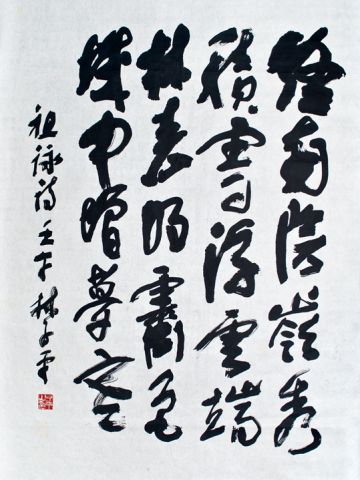 終南陰嶺秀
積雪浮雲端
林表明霽色
城中增暮寒
祖詠詩 壬午